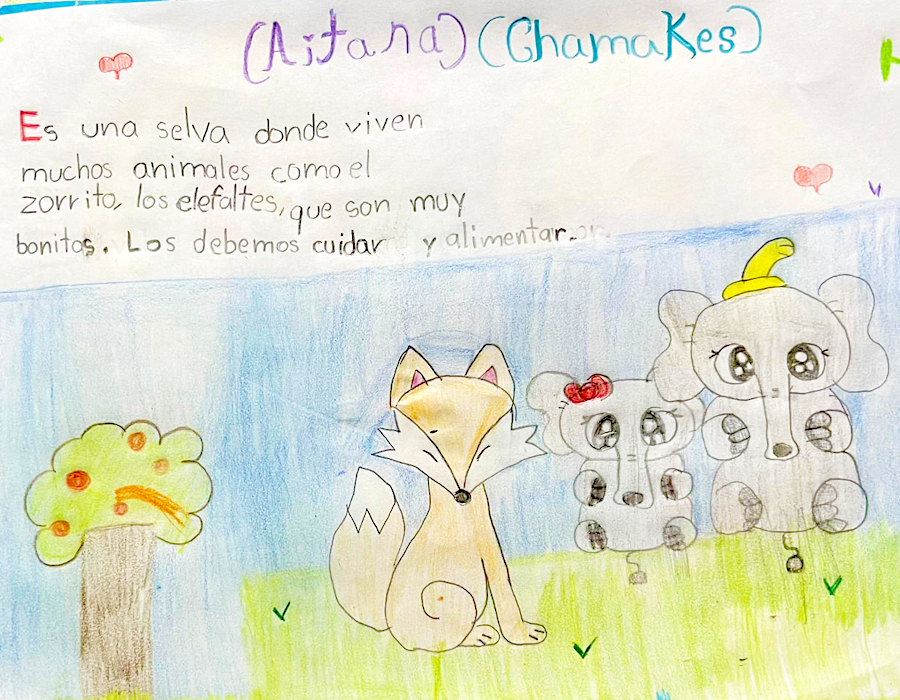 (Aitana) (Chamakes)
Es una selva donde viven
muchos animales como el
zorrito, los elefaltes, que son muy
bonitos. Los debemos cuidar y alimentar.